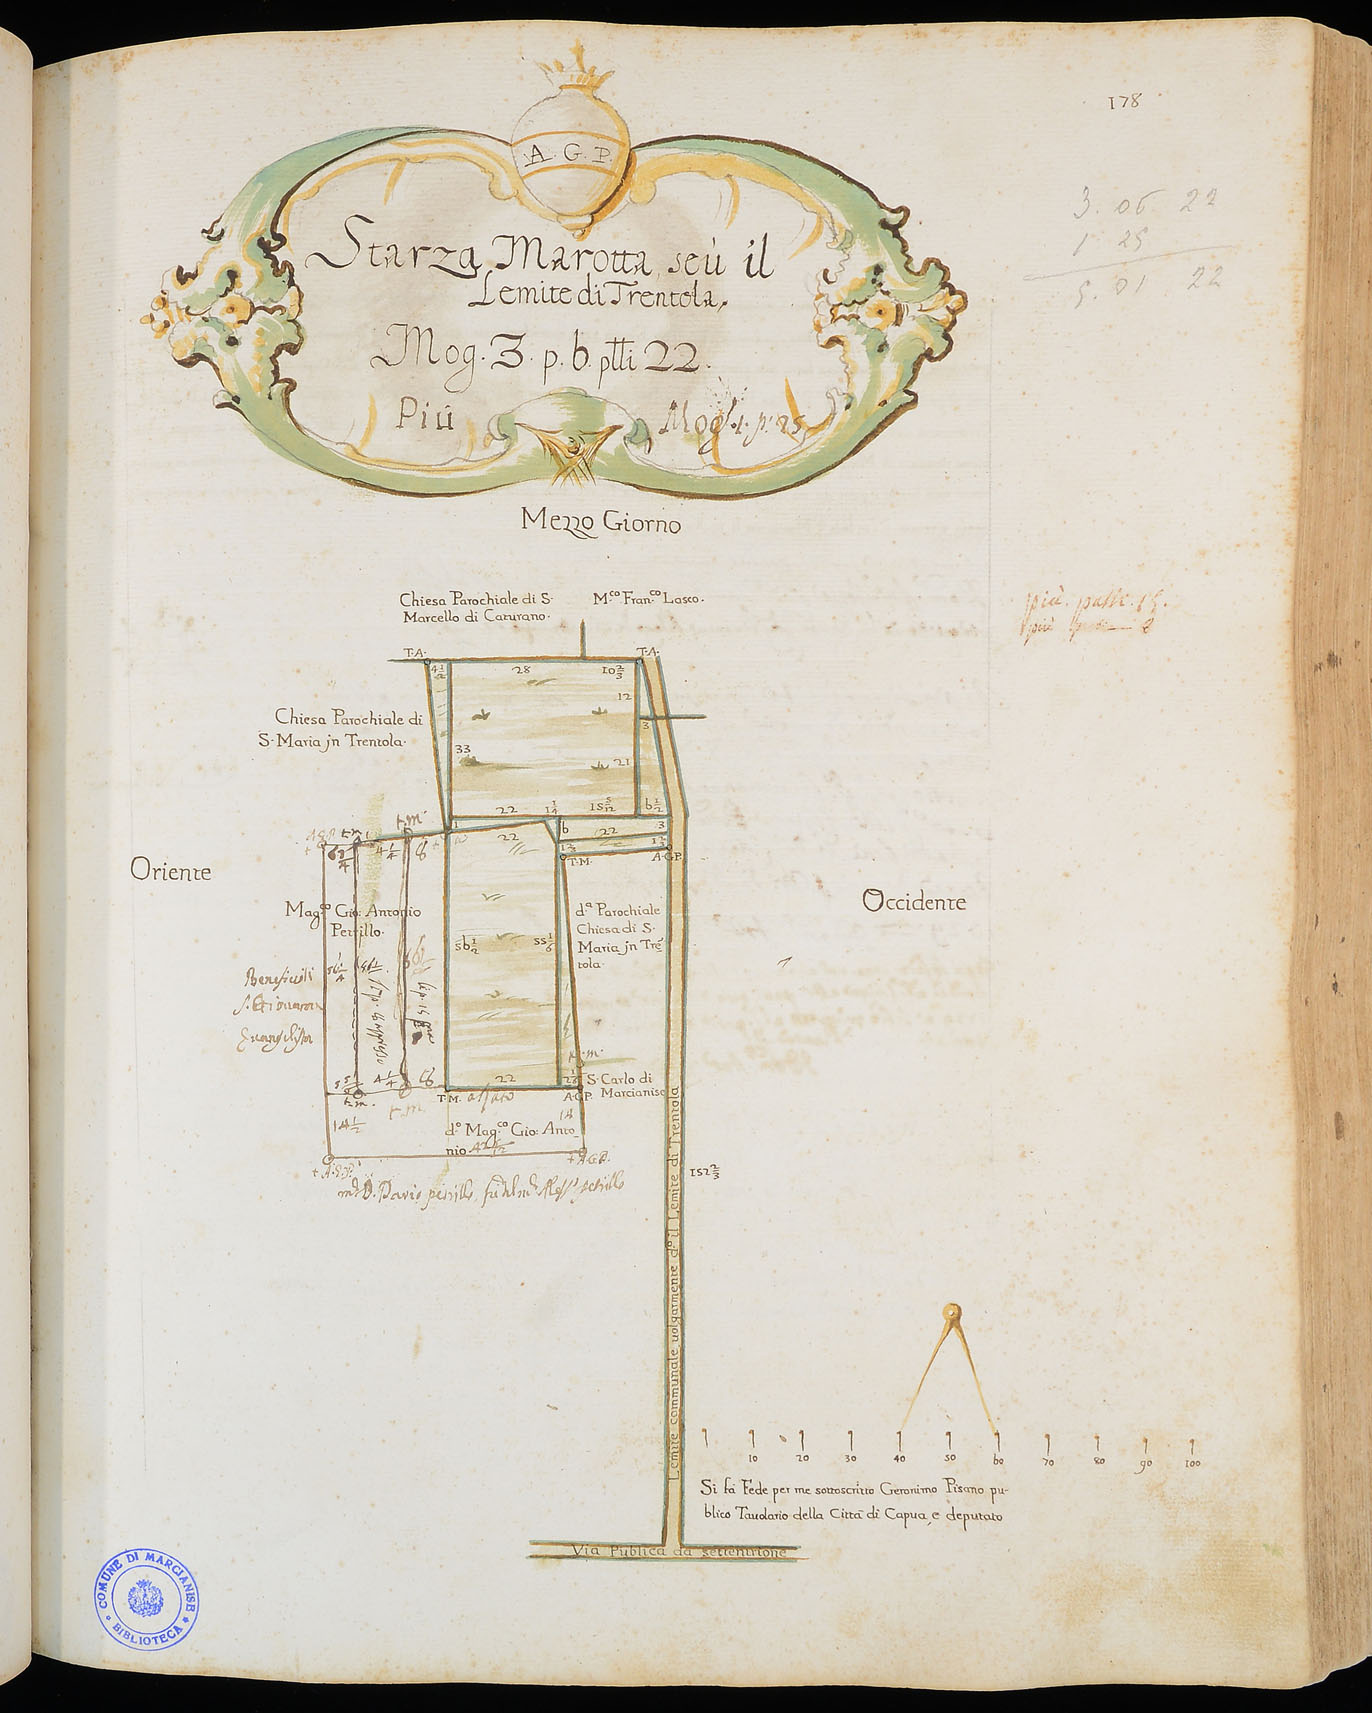 178
A. G. P.
3. 06 22
1 25
5. 01. 22
Starza Marotta seù il
Lemite di Trentola,
Mog. 3. p. 6. ptti 22.
Più Mog. 1. p. 25
Mezzo Giorno
Chiesa Parochiale di S.
Marcello di Caturano.
M.co Fran.co Lasco.
più passi 15.
più
T. A.
T. A.
4 1/2
28
10 2/3
12
3
Chiesa Parochiale di
S. Maria jn Trentola.
33
21
22
1 1/4
15 5/12
6 1/2
1
22
6
22
3
1 1/3
T. M.
A. G. P.
t. m.
t. m.
6 3/4
4 1/4
8
Oriente
Occidente
Mag.co Gio: Antonio
Petrillo.
d.a Parochiale
Chiesa di S.
Maria jn Tre
tola.
56 1/2
55 1/6
56 1/4
Beneficili
S. Giovann
Evangelista
5 5/6
4 1/4
8
22
2 1/6
t. m.
S. Carlo di
Marcianise
t. m.
t. m.
T. M.
A. G. P.
14 1/2
14
d.o Mag.co Gio: Anto
nio
+ A. G. P.
+ A. G. P.
D. Dario petrillo
petrillo
152 2/3
Lemite communale uolgarmente d.o il Lemite di Trentola
10 20 30 40 50 60 70 80 90 100
Si fà Fede per me sottoscritto Geronimo Pisano pu-
blico Tauolario della Città di Capua, e deputato
Via Publica da settentrione
COMUNE DI MARCIANISE
BIBLIOTECA